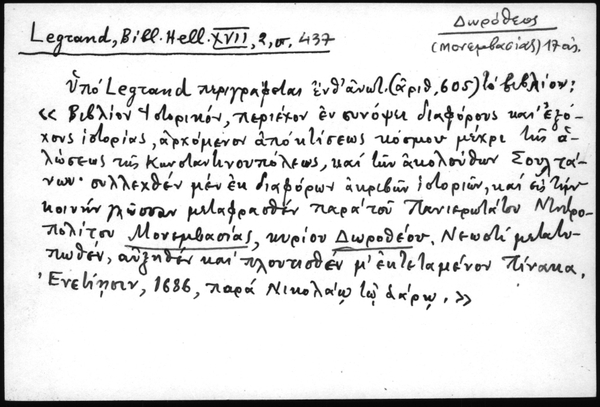 Δωρόθεος
Legrand, Bibl. Hell. XVII, 2, σ. 437
(Μονεμβασίας) 17 αι.
Ὑπό Legrand περιγράφεται ἐνθ' ἀνωτ. (ἀριθ. 605) τό βιβλίον:
« Βιβλίον Ἱστορικόν, περιέχον ἐν συνόψει διαφόρους καί ἐξό-
χους ἱστορίας, ἀρχόμενον ἀπό κτίσεως κόσμου μέχρι τῆς ἁ-
λώσεως τῆς Κωνσταντινουπόλεως, καί τῶν ἀκολούθων Σουλτά-
νων· συλλεχθέν μέν ἐκ διαφόρων ἀκριβῶν ἱστοριῶν, καί εἰς τήν
κοινήν γλῶσσαν μεταφρασθέν παρά τοῦ Πανιερωτάτου Μητρο-
πολίτου Μονεμβασίας, κυρίου Δωροθέου. Νεωστί μετατυ-
πωθέν, αὐξηθέν καί πλουτισθέν μ' ἐκτεταμένον Πίνακα.
Ἐνετίησιν, 1686, παρά Νικολάῳ τῷ Σάρῳ. »